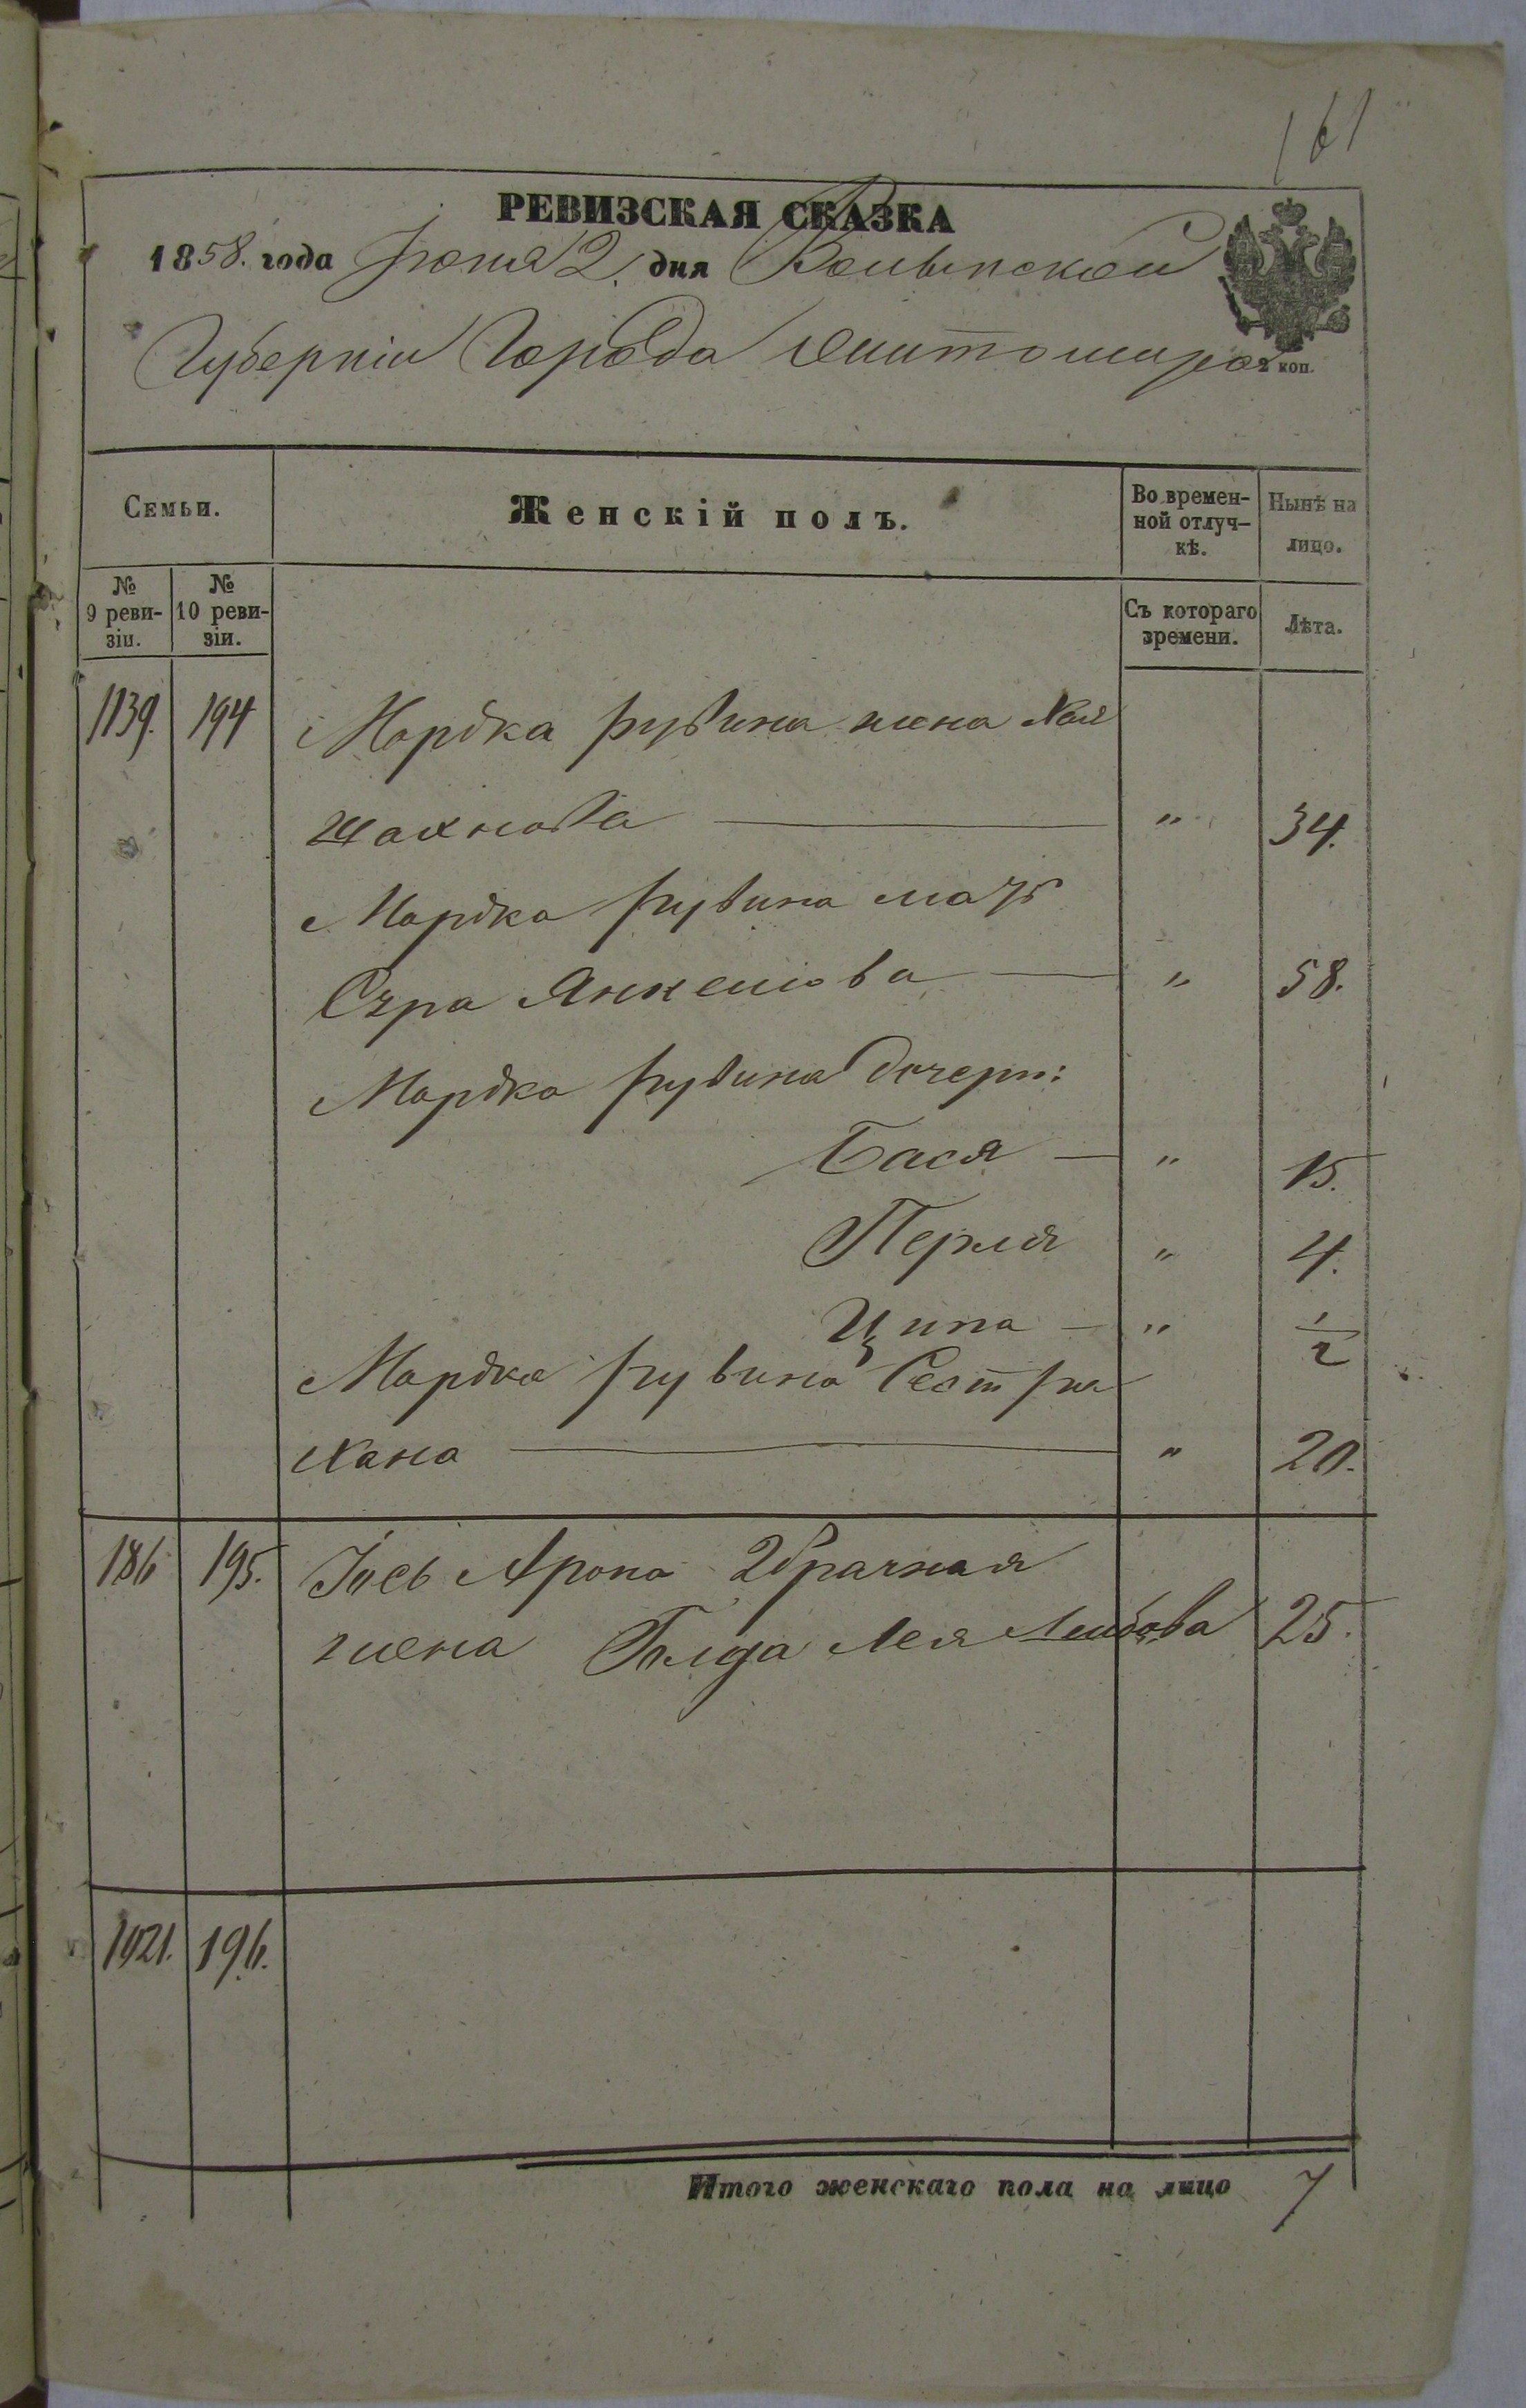 161
РЕВИЗСКАЯ СКАЗКА
1858. года Іюня 2. дня Волынской
Губерніи Города Житомира
2 коп.
Семьи.
Женскій полъ.
Во времен-
ной отлуч-
кѣ.
Нынѣ на
лицо.
№
9 реви-
зіи.
№
10 реви-
зіи.
Съ котораго
времени.
Лѣта.
1139. 194 Мордка Рувина жена Хая
Шахнова — " 34.
Мордка Рувина мать
Сура Янкелева — " 58.
Мордка Рувина дочери:
Бася — " 15.
Перля " 4.
Ципа — " 1/2
Мордка Рувина Сестра
Хана — " 20.
186 195. Іось Арона 2 брачная
жена Голда Лея Лейбова 25.
1921. 196.
Итого женскаго пола на лицо 7